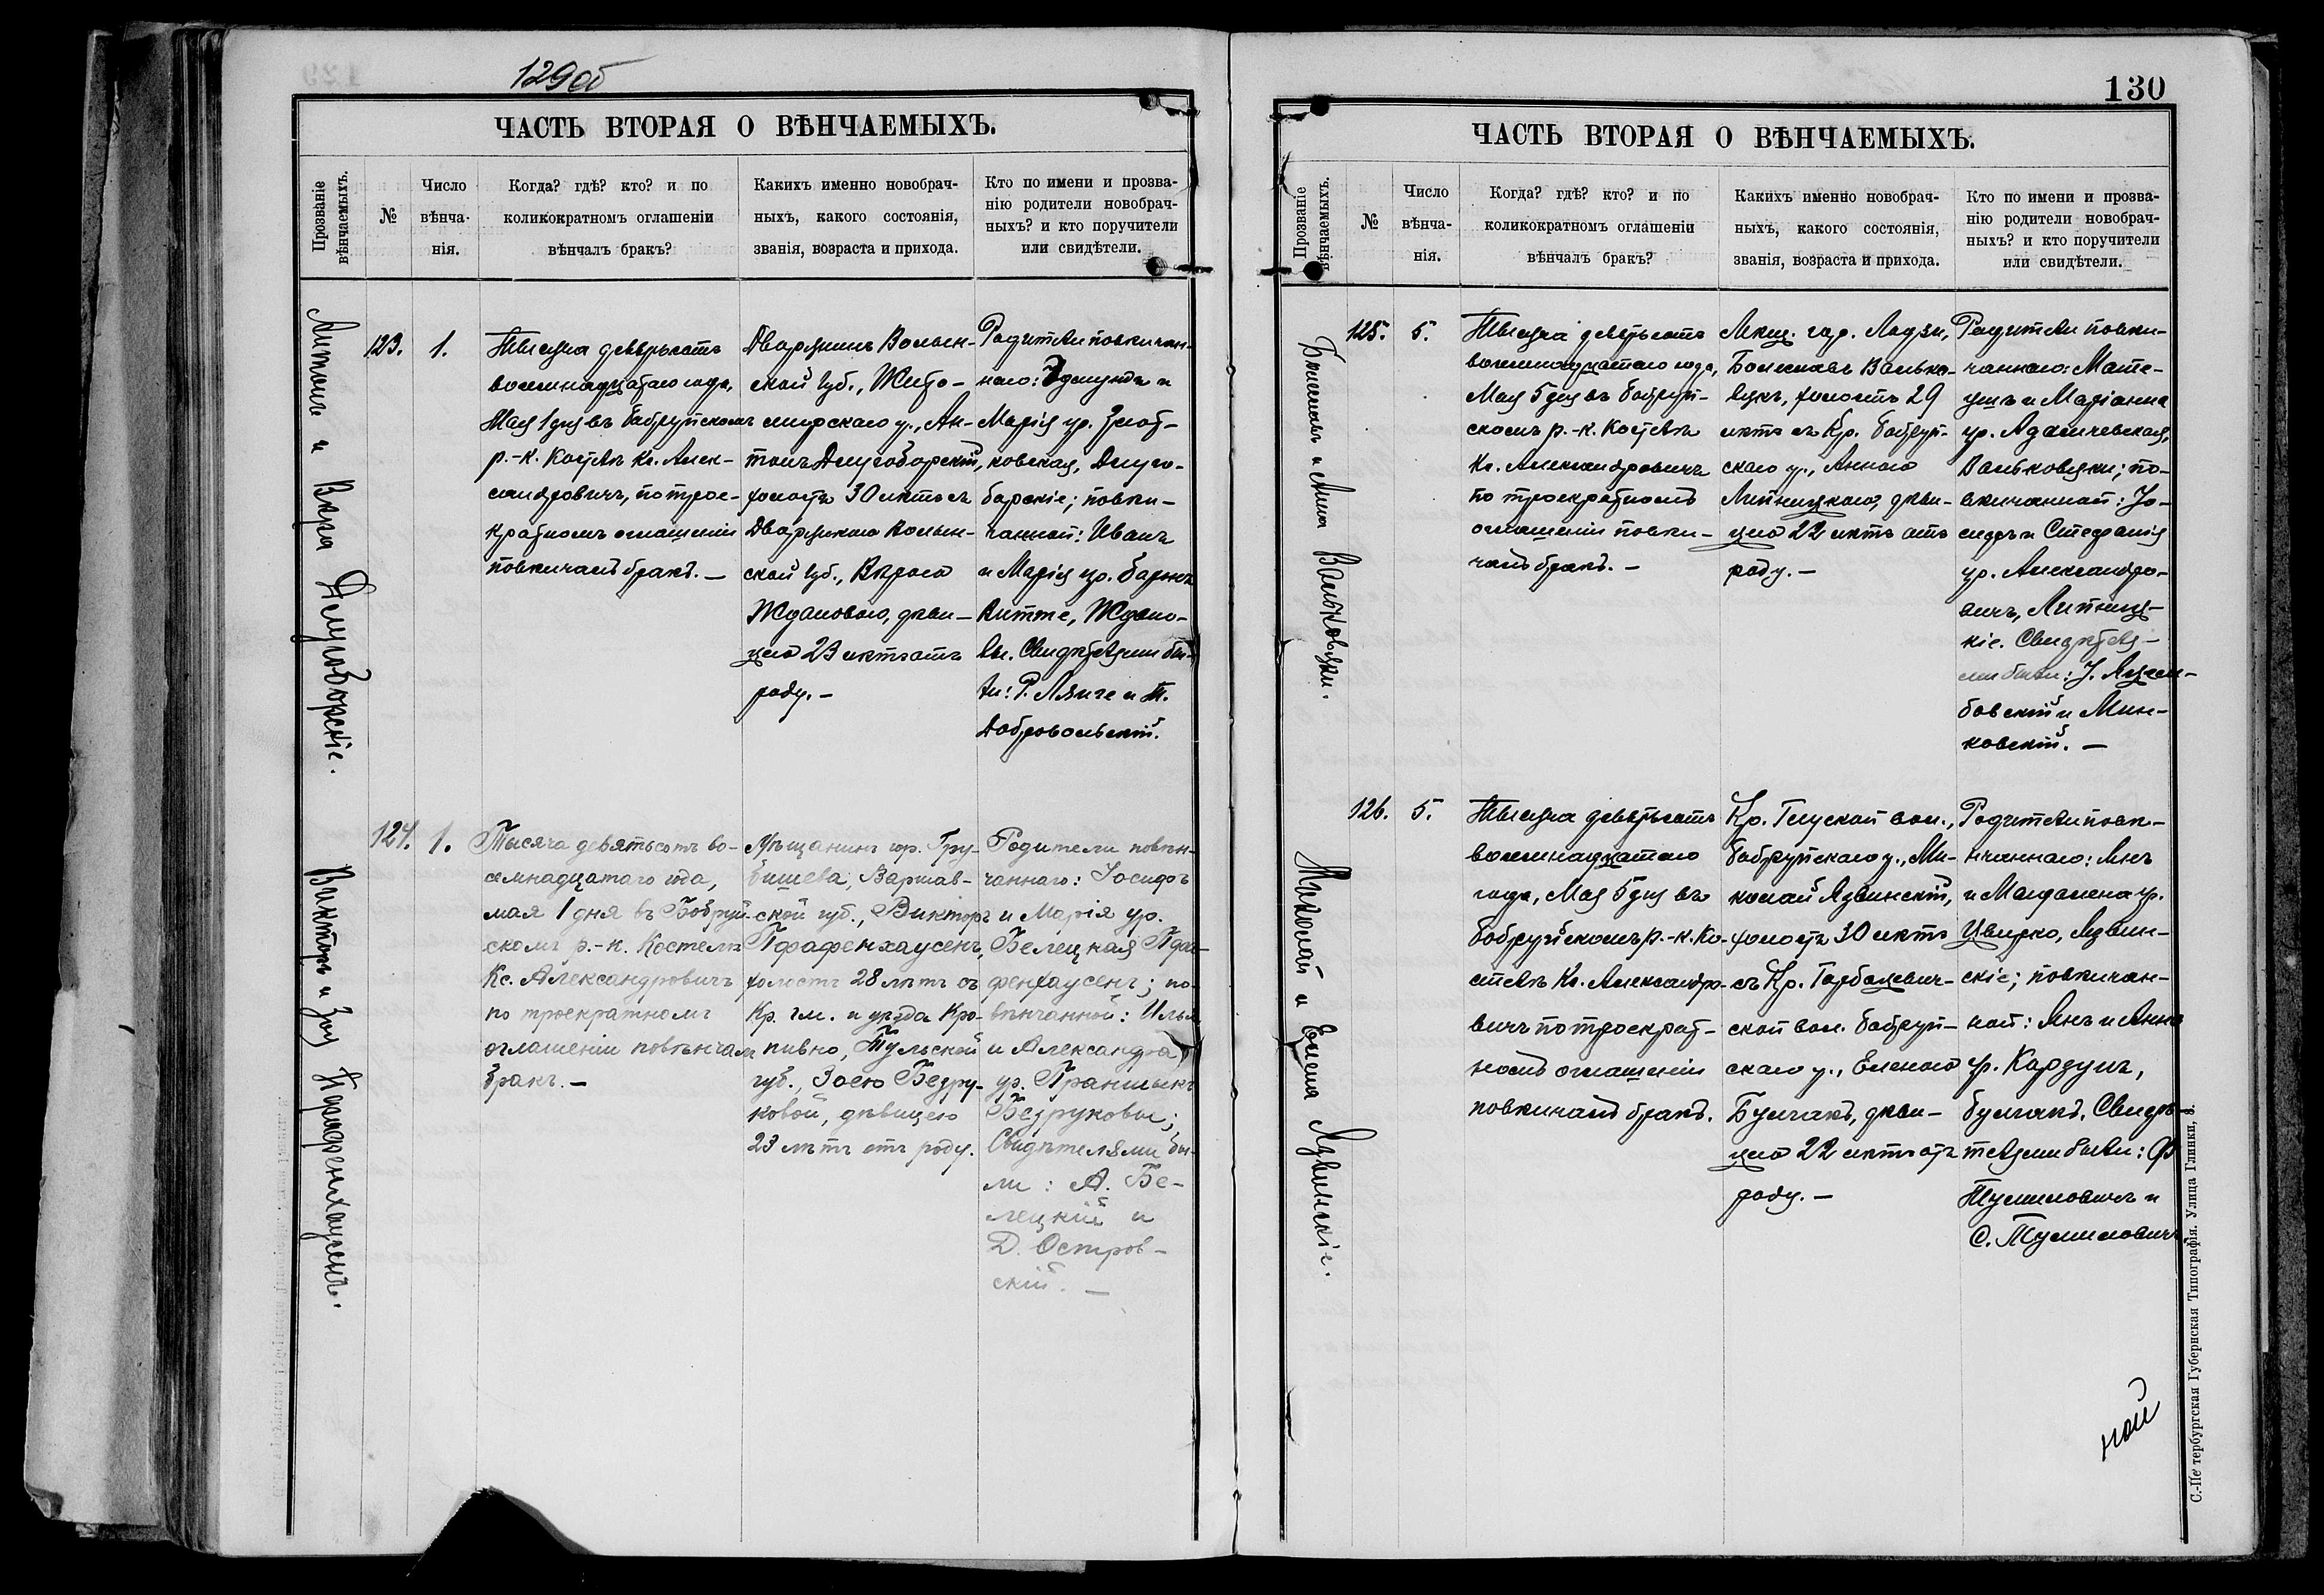 129 об
ЧАСТЬ ВТОРАЯ О ВѢНЧАЕМЫХЪ.
Прозваніе
вѣнчаемыхъ.
№
Число
вѣнча-
нія.
Когда? гдѣ? кто? и по
коликократномъ оглашеніи
вѣнчалъ бракъ?
Какихъ именно новобрач-
ныхъ, какого состоянія,
званія, возраста и прихода.
Кто по имени и прозва-
нію родители новобрач-
ныхъ? и кто поручители
или свидѣтели.
Антонъ и Вѣра Длугоборскіе.
123.
1.
Тысяча девятьсотъ
восемнадцатаго года,
Мая 1 дня въ Бобруйскомъ
р.-к. Костелѣ Кс. Алек-
сандровичъ, по трое-
кратномъ оглашеніи
повѣнчалъ бракъ. —
Дворянинъ Волын-
ской губ., Жито-
мирскаго у., Ан-
тонъ Длугоборскій,
холостъ 30 лѣтъ съ
Дворянкою Волын-
ской губ., Вѣрою
Ждановою, дѣви-
цею 23 лѣтъ отъ
роду. —
Родители повѣнчан-
наго: Эдмундъ и
Марія ур. Згеот-
ковская, Длуго-
борскіе; повѣн-
чанной: Иванъ
и Марія ур. Баронъ
Витте, Ждано-
вы. Свидѣтелями бы-
ли: Р. Лянге и Т.
Добровольскій.
Викторъ и Зоя Пфафенхаусенъ.
124.
1.
Тысяча девятьсотъ во-
семнадцатаго года,
мая 1 дня въ Бобруй-
скомъ р.-к. Костелѣ
Кс. Александровичъ
по троекратномъ
оглашеніи повѣнчалъ
бракъ. —
Мѣщанинъ гор. Гру-
бишева, Варшав-
ской губ., Викторъ
Пфафенхаусенъ,
холостъ 28 лѣтъ съ
Кр. гм. и уѣзда Кро-
пивно, Тульской
губ., Зоею Безру-
ковой, дѣвицею
23 лѣтъ отъ роду.
Родители повѣн-
чаннаго: Іосифъ
и Марія ур.
Белецкая Пфа-
фенхаусенъ; по-
вѣнчанной: Илья
и Александра
ур. Пранишекъ
Безруковы;
Свидѣтелями бы-
ли: А. Бе-
лецкій и
Д. Остров-
скій. —
130
ЧАСТЬ ВТОРАЯ О ВѢНЧАЕМЫХЪ.
Прозваніе
вѣнчаемыхъ.
№
Число
вѣнча-
нія.
Когда? гдѣ? кто? и по
коликократномъ оглашеніи
вѣнчалъ бракъ?
Какихъ именно новобрач-
ныхъ, какого состоянія,
званія, возраста и прихода.
Кто по имени и прозва-
нію родители новобрач-
ныхъ? и кто поручители
или свидѣтели.
Болеславъ и Анна Вальковяки.
125.
5.
Тысяча девятьсотъ
восемнадцатаго года,
Мая 5 дня въ Бобруй-
скомъ р.-к. Костелѣ
Кс. Александровичъ
по троекратномъ
оглашеніи повѣн-
чалъ бракъ. —
Мѣщ. гор. Лодзи,
Болеславъ Валько-
вякъ, холостъ 29
лѣтъ съ Кр. Бобруй-
скаго у., Анною
Липницкою, дѣви-
цею 22 лѣтъ отъ
роду. —
Родители повѣн-
чаннаго: Мате-
ушъ и Маріанна
ур. Адамчевская,
Вальковяки; по-
вѣнчанной: Іо-
сифъ и Стефанія
ур. Александро-
вичъ, Липниц-
кіе. Свидѣтеля-
ми были: І. Яцем-
бовскій и Мин-
ковскій. —
Николай и Елена Язвинскіе.
126.
5.
Тысяча девятьсотъ
восемнадцатаго
года, Мая 5 дня въ
Бобруйскомъ р.-к. Ко-
стелѣ Кс. Александро-
вичъ по троекрат-
номъ оглашеніи
повѣнчалъ бракъ.
Кр. Глуской вол.,
Бобруйскаго у., Ни-
колай Язвинскій,
холостъ 30 лѣтъ
съ Кр. Горбацевич-
ской вол. Бобруй-
скаго у., Еленою
Булгакъ, дѣви-
цею 22 лѣтъ отъ
роду. —
Родители повѣ-
нчаннаго: Янъ
и Магдалена ур.
Цвирко, Язвин-
скіе; повѣнчан-
ной: Янъ и Анна
ур. Кардушъ,
Булгакъ. Свидѣ-
телями были: Ф.
Тумиловичъ и
С. Тумиловичъ.
ной
С.-Петербургская Губернская Типографія. Улица Глинки, 8.